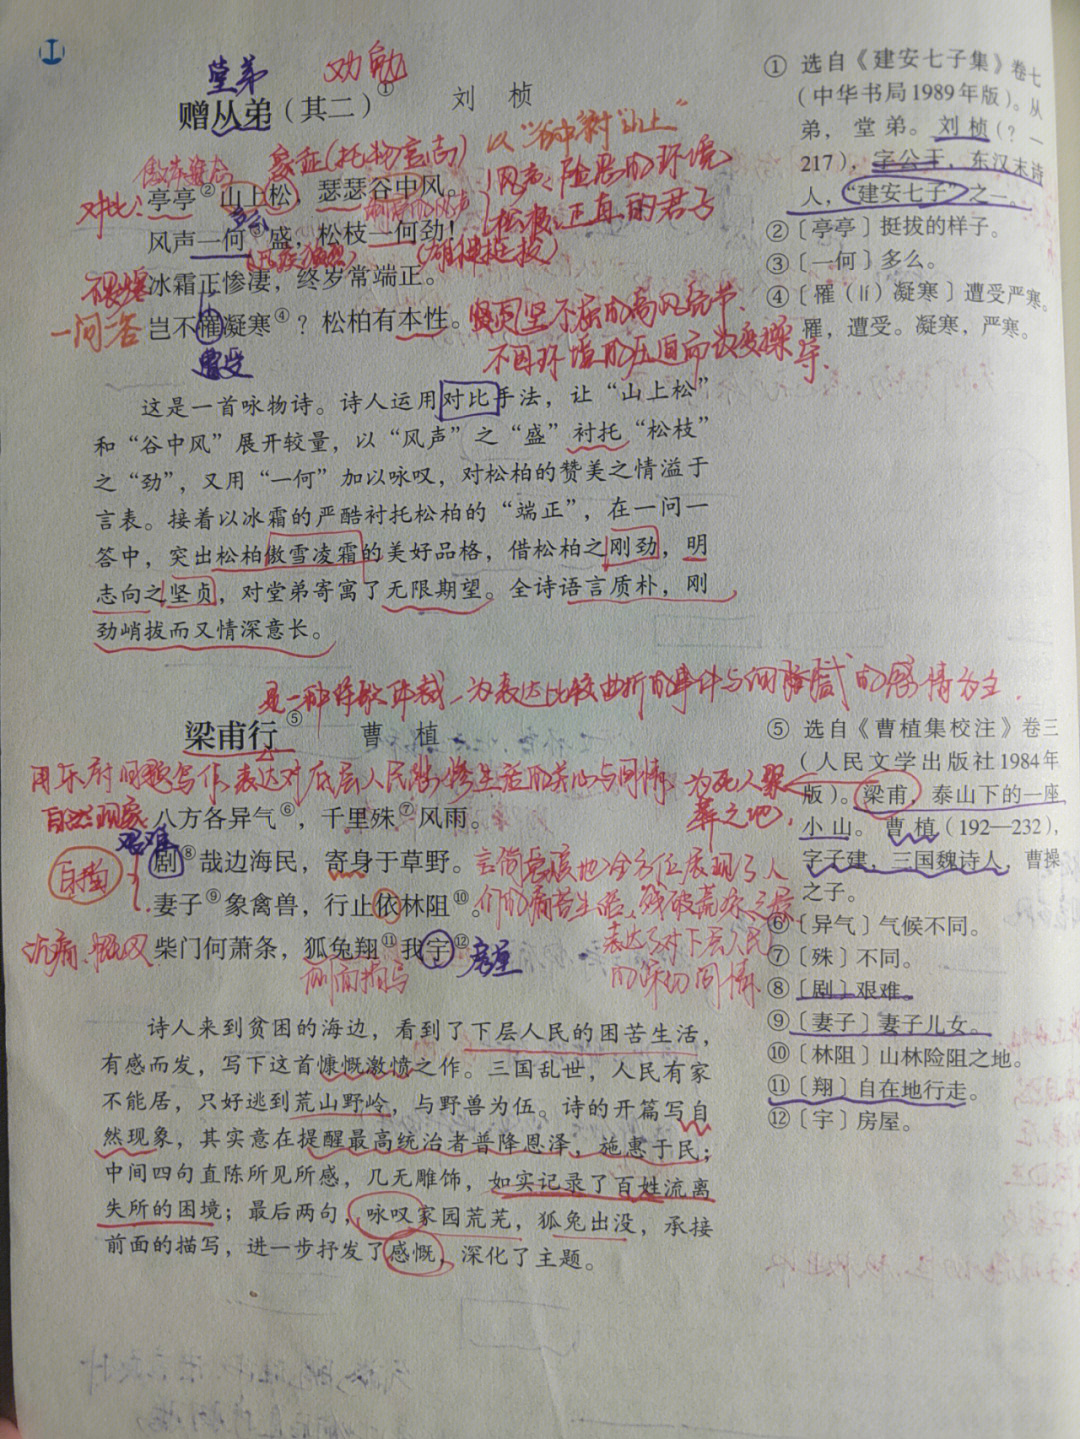 堂弟 劝勉
赠从弟（其二）①
刘 桢
象征（托物言志） 以“谷中风”衬“山上”
对比：亭亭②山上松，瑟瑟谷中风。
风声：险恶的环境
松枝：正直的君子
多么
风声一何③盛，松枝一何劲！
（雄健挺拔）
冰霜正惨凄，终岁常端正。
一问一答 岂不罹凝寒④？松柏有本性。
坚贞不屈的高风亮节
不因环境的压迫而改变操守
lí
遭受
这是一首咏物诗。诗人运用对比手法，让“山上松”
和“谷中风”展开较量，以“风声”之“盛”衬托“松枝”
之“劲”，又用“一何”加以咏叹，对松柏的赞美之情溢于
言表。接着以冰霜的严酷衬托松柏的“端正”，在一问一
答中，突出松柏傲雪凌霜的美好品格，借松柏之刚劲，明
志向之坚贞，对堂弟寄寓了无限期望。全诗语言质朴，刚
劲峭拔而又情深意长。
① 选自《建安七子集》卷七
（中华书局1989年版）。从
弟，堂弟。刘桢（？—
217），字公干，东汉末诗
人，“建安七子”之一。
②〔亭亭〕挺拔的样子。
③〔一何〕多么。
④〔罹（lí）凝寒〕遭受严寒。
罹，遭受。凝寒，严寒。
是一种诗歌体裁，为表达比较曲折的事件与细腻的感情为主.
梁甫行⑤
曹 植
用乐府旧题写作，表达对底层人民悲惨生活的关心与同情
为死人聚葬之地，
自然现象 八方各异气⑥，千里殊⑦风雨。
艰难
白描
剧⑧哉边海民，寄身于草野。
妻子⑨象禽兽，行止依林阻⑩。
柴门何萧条，狐兔翔⑪我宇⑫ 房屋
沉痛、慨叹
侧面描写
全方位展现了人
们的痛苦生活
表达了对下层人民
的深切同情
诗人来到贫困的海边，看到了下层人民的困苦生活，
有感而发，写下这首慷慨激愤之作。三国乱世，人民有家
不能居，只好逃到荒山野岭，与野兽为伍。诗的开篇写自
然现象，其实意在提醒最高统治者普降恩泽，施惠于民；
中间四句直陈所见所感，几无雕饰，如实记录了百姓流离
失所的困境；最后两句，咏叹家园荒芜，狐兔出没，承接
前面的描写，进一步抒发了感慨，深化了主题。
⑤ 选自《曹植集校注》卷三
（人民文学出版社1984年
版）。梁甫，泰山下的一座
小山。曹植（192—232），
字子建，三国魏诗人，曹操
之子。
⑥〔异气〕气候不同。
⑦〔殊〕不同。
⑧〔剧〕艰难。
⑨〔妻子〕妻子儿女。
⑩〔林阻〕山林险阻之地。
⑪〔翔〕自在地行走。
⑫〔宇〕房屋。